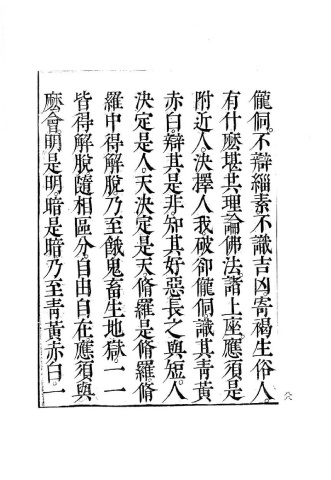 儱侗。不辯緇素不識吉凶寄褐生俗人。
有什麽堪共理論佛法諸上座應須是
附近人。決擇人我破卻儱侗識其青黃
赤白。辯其是非。知其好惡長之與短。人
決定是人。天決定是天脩羅是脩羅脩
羅中得解脫乃至餓鬼畜生地獄。一一
皆得解脫隨相區分。自由自在應須與
麽會。明是明。暗是暗乃至青黃赤白。一